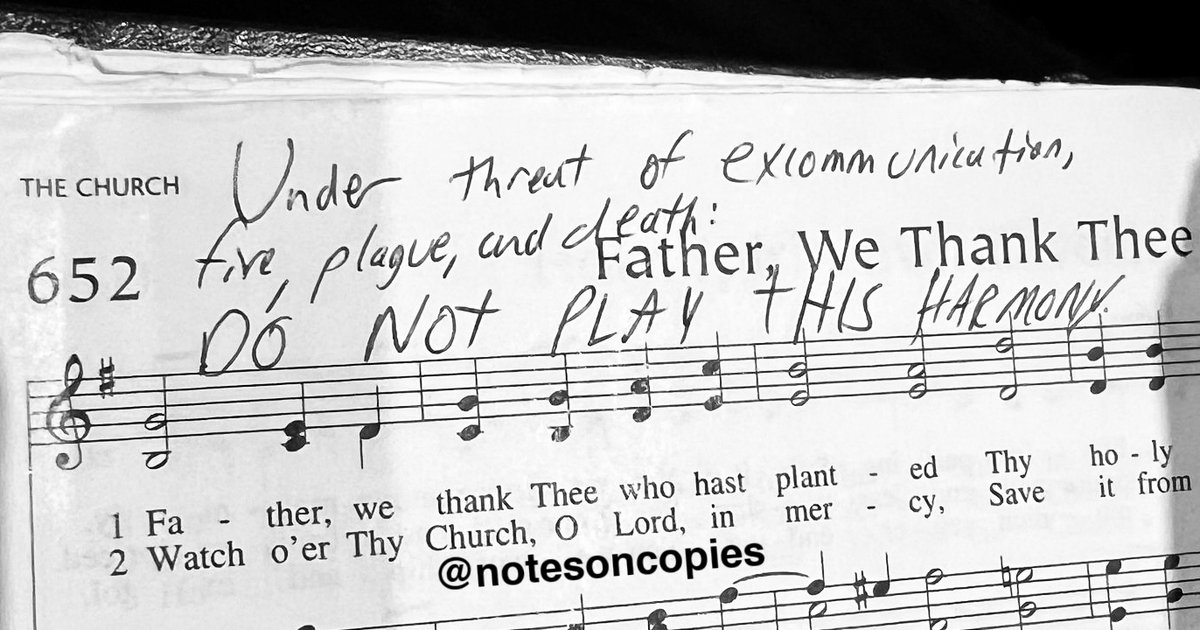 THE CHURCH
Under threat of excommunication,
fire, plague, and death:
652
Father, We Thank Thee
DO NOT PLAY THIS HARMONY.
1 Fa - ther, we thank Thee who hast plant - ed Thy ho - ly
2 Watch o'er Thy Church, O Lord, in mer - cy, Save it from
@notesoncopies